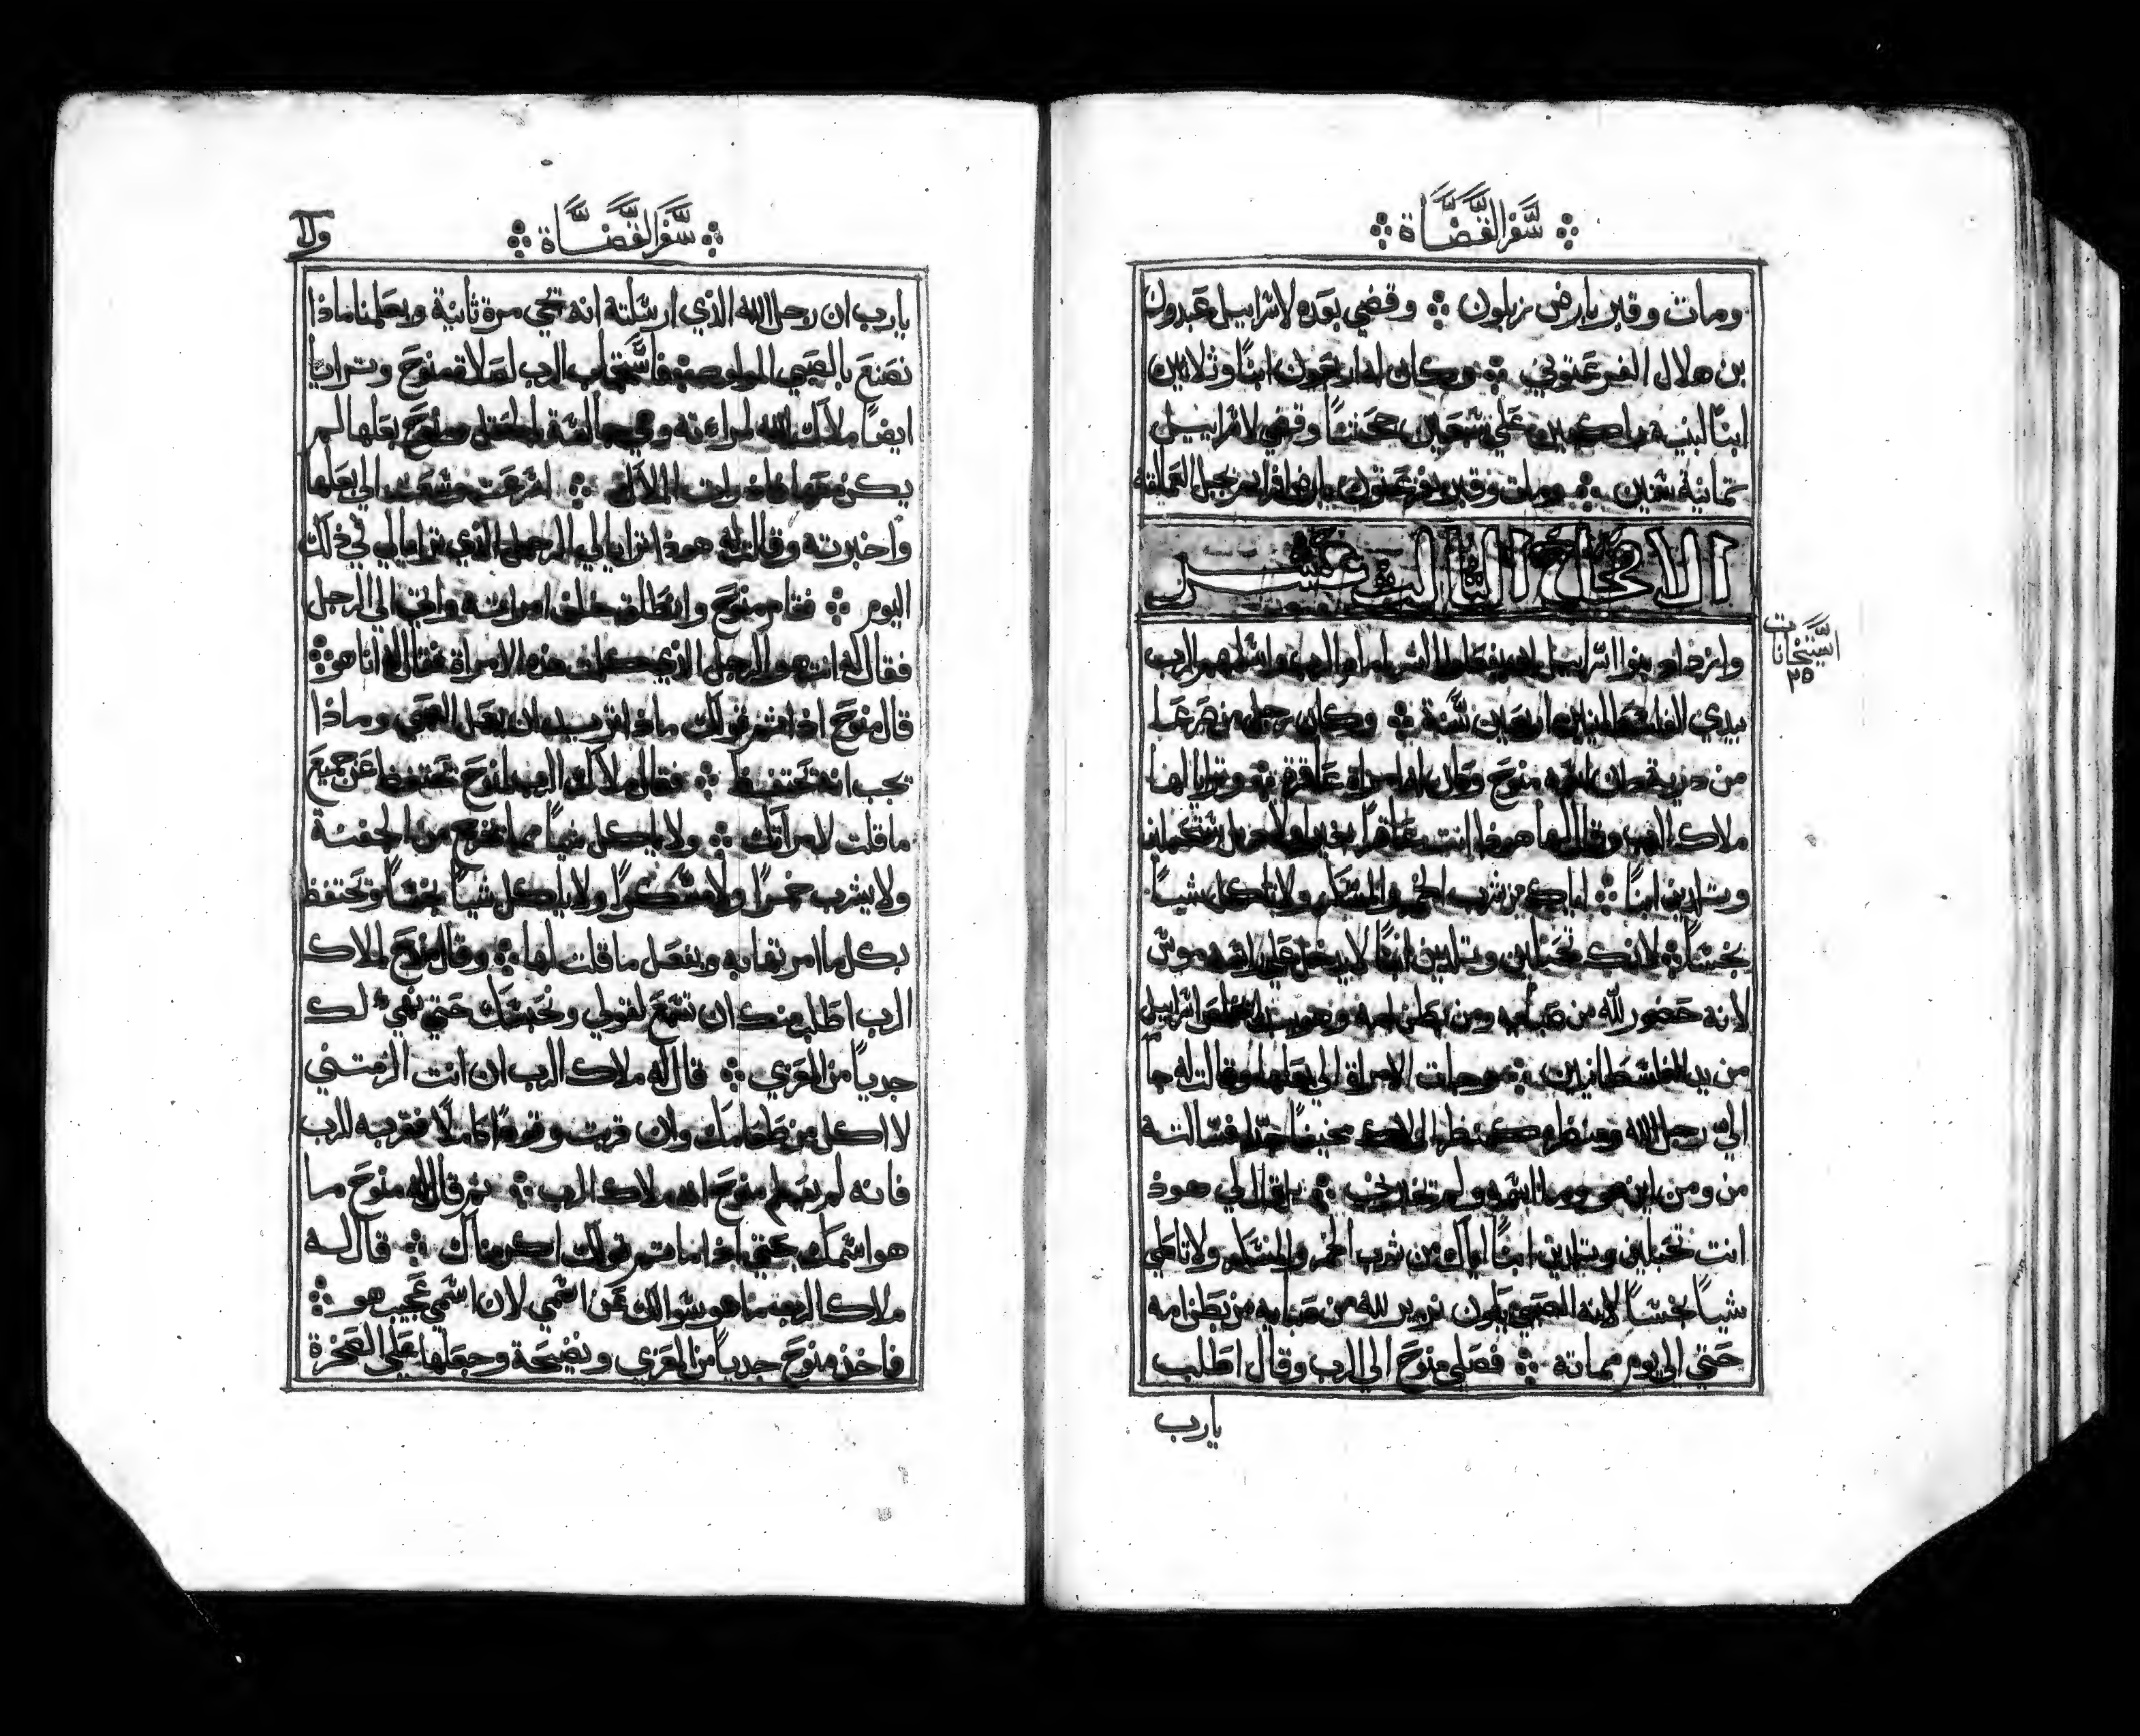 سفر القضاة
ومات وقبر بارض زبلون وقضي بعده لاسراييل عبدون
بن هلال الفرعتوني وكان له اربعون ابنًا وثلاثين
ابنًا لبنيه راكبين علي سبعين جحشًا وقضي لاسراييل
ثمانية سنين ومات وقبر بفرعتون بارض افرام بجبل العمالقة
الاصحاح الثالث عشر
وازداد بنوا اسراييل ان يفعلوا الشر امام الرب واسلمهم الرب
بيدي الفلسطانيين اربعين سنة وكان رجل من صرعا
من دان اسمه منوح وكان له امراة عاقرة وترايا لها
ملاك الرب وقال لها هوذا انت عاقرًا بغير ولد ستحبلين
وتلدين ابنًا اياكي من شرب الخمر والمسكر ولا تاكلي شيًا
نجسًا لانك تحبلين وتلدين ابنًا لا يدخل علي راسه موس
لانه حضور لله من صبايه ومن بطن امه وهو اسراييل
من يد الفلسطانيين وجات الامراة الي بعلها وقالت له جا
اليّ رجل الله ومنظره كمنظر الملاك مخيفًا جدًا فسالته
من ومن اين هو وما اسمه ولم بل قال لي هوذ
انت تحبلين وتلدين ابنًا اياك من شرب الخمر والمسكر ولا تاكلي
شيًا نجسًا لانه الصبي يكون نذير لله من صبايه من بطن امه
حتي الي يوم مماته فصلي منوح الي الرب وقال اطلب
يا رب
السنخانات
٢٥
سفر القضاة
يا رب ان رجل الله الذي ارسلته انه تجي مرة ثانية ويعلمنا ماذا
نصنع بالصبي المولود فاستجاب الرب لصلاة منوح وترايا
ايضًا ملاك الله لمراته وهي جالسة بالحقل ومنوح بعلها لم
يكن معها فاذ رات الملاك اسرعت وسعت الي بعلها
واخبرته وقالت له هوذا ترايا لي الرجل الذي ترايا لي في ذلك
اليوم فقام منوح وانطلق خلف امراته واتي الي الرجل
فقال له انت هو الرجل الذي كلمت هذه الامراة فقال انا هو
قال منوح اذا تم قولك ماذا تريد ان يفعل الصبي وماذا
تجب انه تحتفظ فقال ملاك الرب لمنوح تحتفظ عن جميع
ما قلت لامراتك ولا ياكل شيًا مما تخرج من الجفنة
ولا يشرب خمرًا ولا مسكرًا ولا ياكل شيًا نجسًا وتحتفظ
بكل ما امرتها به ويفعل ما قلت لها وقال منوح لملاك
الرب اطلب منك ان تسمع لقولي ونحبسك حتي نهيي لك
جديًا من المعزي قال له ملاك الرب ان انت الزمتني
لا اكل من طعامك وان قربت وقودًا كاملًا فقربه للرب
فانه لم يعلم منوح انه ملاك الرب ثم قال له منوح ما
هو اسمك حتي اذا ما تم قولك اكرمناك قال له
ملاك الرب ما هو سوالك عن اسمي لان اسمي عجيب هو
فاخذ منوح جديًا من المعزي ونضيحة وجعلها علي الصخرة